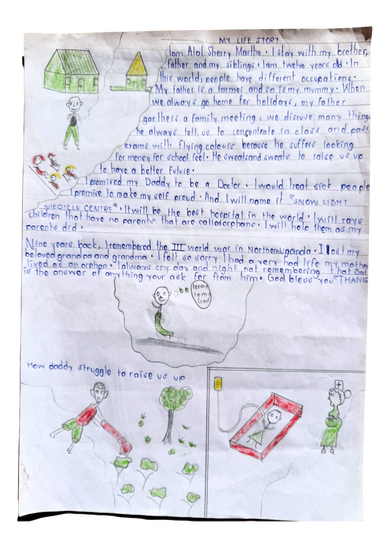 MY LIFE STORY
Iam Atol Sherry Martha. I stay with my brother,
father and my siblings. I am twelve years old. In
this world, people have different occupations.
My father is a farmer and so is my mummy. When
we always go home for holidays, my father
garthers a family meeting, we discuss many things
he always tell us to concentrate in class and pass
exams with flying colours because he suffers looking
for money for school fees. He sweats and sweats to raise us up
to have a better future.
I promised my Daddy to be a Doctor. I would treat sick people
I promise to make my self proud. And I will name it "SNOW LIGHT
MEDICLE CENTRE". It will be the best hospital in the world. I will
children that have no parents that are called orphans. I will help them as my
parents did.
Nine years back, I remembered the III world war in Northern uganda. I lost my
beloved grandpa and grandma. I felt so sorry I had a very bad life my mother
lived as an orphan. I always cry day and night not remembering that God
is the answer of anything your ask for from him. God bless you THANKS
to my
God
How daddy struggle to raise us up